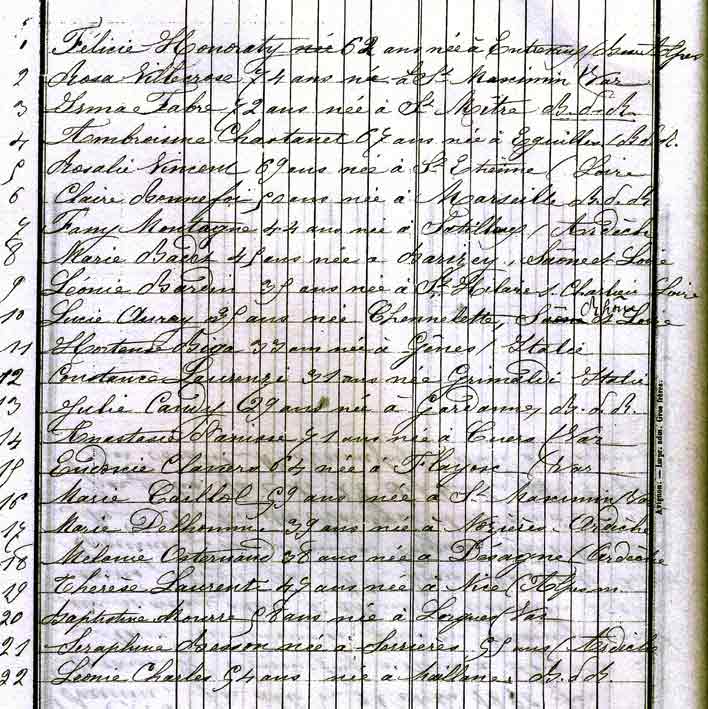 1 Félicie Honoraty née 62 ans née à Entrevaux / Basses Alpes
2 Rosa Villecrose 74 ans née à St Maximin Var
3 Irma Fabre 72 ans née à St Mître B. d. R.
4 Ambroisine Chastanet 67 ans née à Eguilles / B. d. R.
5 Rosalie Vincent 69 ans née à St Etienne / Loire
6 Claire Bonnefoi ans née à Marseille B. d. R
7 Fany Montagne 44 ans née à / Ardèche
8 Marie Badet 45 ans née à , Saône et Loire
9 Léonie Bardin 35 ans née à St Hilaire s Charlieu Loire
10 Lucie Auray 35 ans née Chennelette, Saône et Loire Rhône
11 Hortense Biga 33 ans née à Gênes / Italie
12 Constance Laurenzi 31 ans née Grimaldi Italie
13 Julie Candy 29 ans née à Gardanne, B. d. R.
14 Anastasie 71 ans née à Cuers / Var
15 Eudoxie 64 née à Flayosc / Var
16 Marie Taillol 59 ans née à St Maximin Var
17 Marie Delhomme 39 ans née à Nozières Ardèche
18 Mélanie 38 ans née à Désaigne / Ardèche
29 Thérèse Laurent 47 ans née à Nice / Alpes m.
20 Baptistine Mourre 58 ans née à Lorgues / Var
21 Seraphine Besson née à Serrières 55 ans / Ardèche
22 Léonie Charles 54 ans née à Maillane. B. d R
Avignon. — Impr. adm. Gros frères.